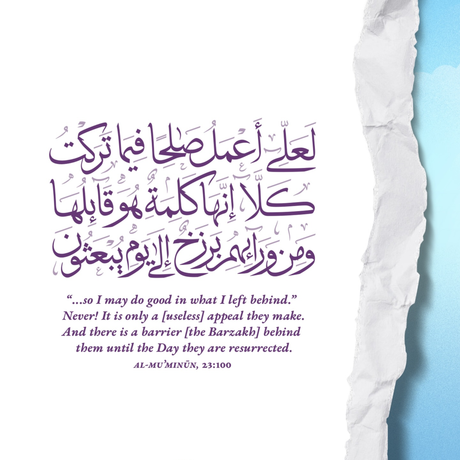 لَعَلِّي أَعْمَلُ صَالِحًا فِيمَا تَرَكْتُ
كَلَّا إِنَّهَا كَلِمَةٌ هُوَ قَائِلُهَا
وَمِن وَرَائِهِم بَرْزَخٌ إِلَى يَوْمِ يُبْعَثُونَ
“...so I may do good in what I left behind.”
Never! It is only a [useless] appeal they make.
And there is a barrier [the Barzakh] behind
them until the Day they are resurrected.
AL-MU’MINŪN, 23:100